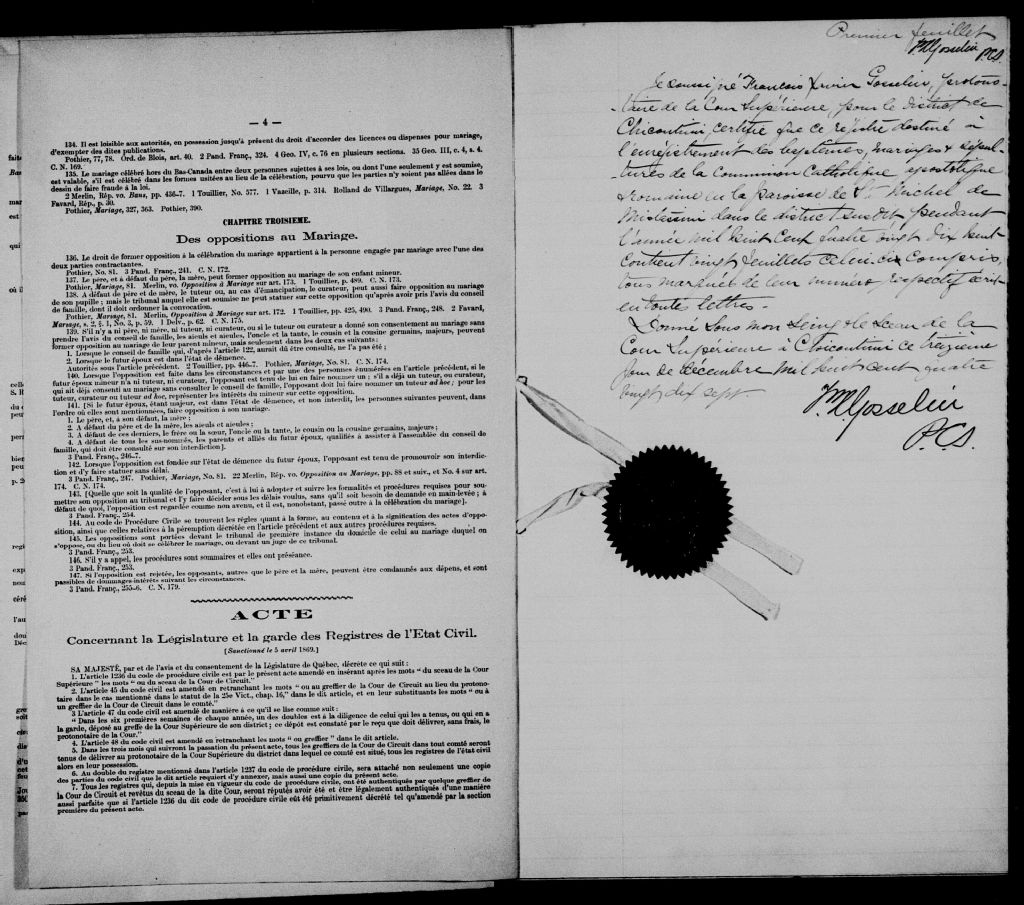 — 4 —
134. Il est loisible aux autorités, en possession jusqu'à présent du droit d'accorder des licences ou dispenses pour mariage,
d'exempter des dites publications.
Pothier, 77, 78. Ord. de Blois, art. 40. 2 Pand. Franç., 324. 4 Geo. IV, c. 76 en plusieurs sections. 35 Geo. III, c. 4, s. 4.
C. N. 169.
135. Le mariage célébré hors du Bas-Canada entre deux personnes sujettes à ses lois, ou dont l'une seulement y est soumise,
est valable, s'il est célébré dans les formes usitées au lieu de la célébration, pourvu que les parties n'y soient pas allées dans le
dessin de faire fraude à la loi.
2 Merlin, Rép. vo. Bans, pp. 436-7. 1 Touillier, No. 577. 1 Vazeille, p. 314. Rolland de Villargues, Mariage, No. 22. 3
Favard, Rép., p. 30.
Pothier, Mariage, 327, 363. Pothier, 390.
CHAPITRE TROISIEME.
Des oppositions au Mariage.
136. Le droit de former opposition à la célébration du mariage appartient à la personne engagée par mariage avec l'une des
deux parties contractantes.
Pothier, No. 81. 3 Pand. Franç., 241. C. N. 172.
137. Le père, et à défaut du père, la mère, peut former opposition au mariage de son enfant mineur.
Pothier, Mariage, 81. Merlin, vo. Opposition à Mariage sur art. 173. 1 Touillier, p. 489. C. N. 173.
138. A défaut de père et de mère, le tuteur ou, au cas d'émancipation, le curateur, peut aussi faire opposition au mariage
de son pupille ; mais le tribunal auquel elle est soumise ne peut statuer sur cette opposition qu'après avoir pris l'avis du conseil
de famille, dont il doit ordonner la convocation.
Pothier, Mariage, 81. Merlin, Opposition à Mariage sur art. 172. 1 Touillier, pp. 425, 490. 3 Pand. Franç., 248. 2 Favard,
Mariage, s. 2, § 1, No. 3, p. 59. 1 Delv., p. 62. C. N. 175.
139. S'il n'y a ni père, ni mère, ni tuteur, ni curateur, ou si le tuteur ou curateur a donné son consentement au mariage sans
prendre l'avis du conseil de famille, les aieuls et aieules, l'oncle et la tante, le cousin et la cousine germains, majeurs, peuvent
former opposition au mariage de leur parent mineur, mais seulement dans les deux cas suivants :
1. Lorsque le conseil de famille qui, d'après l'article 122, aurait dû être consulté, ne l'a pas été ;
2. Lorsque le futur époux est dans l'état de démence.
Autorités sous l'article précédent. 2 Touillier, pp. 446-7. Pothier, Mariage, No. 81. C. N. 174.
140. Lorsque l'opposition est faite dans les circonstances et par une des personnes énumérées en l'article précédent, si le
futur époux mineur n'a ni tuteur, ni curateur, l'opposant est tenu de lui en faire nommer un ; s'il a déjà un tuteur, ou curateur,
qui ait déjà consenti au mariage sans consulter le conseil de famille, l'opposant doit lui faire nommer un tuteur ad hoc ; pour les
tuteur, curateur ou tuteur ad hoc, représenter les intérêts du mineur sur cette opposition.
141. [Si le futur époux, étant majeur, est dans l'état de démence, et non interdit, les personnes suivantes peuvent, dans
l'ordre où elles sont mentionnées, faire opposition à son mariage.
1. Le père, et, à son défaut, la mère ;
2. A défaut du père et de la mère, les aieuls et aieules ;
3. A défaut de ces derniers, le frère ou la sœur, l'oncle ou la tante, le cousin ou la cousine germains, majeurs ;
4. A défaut de tous les sus-nommés, les parents et alliés du futur époux, qualifiés à assister à l'assemblée du conseil de
famille, qui doit être consulté sur son interdiction].
3 Pand. Franç., 246-7.
142. Lorsque l'opposition est fondée sur l'état de démence du futur époux, l'opposant est tenu de promouvoir son interdic-
tion et d'y faire statuer sans délai.
3 Pand. Franç., 247. Pothier, Mariage, No. 81. 22 Merlin, Rép. vo. Opposition au Mariage, pp. 88 et suiv., et No. 4 sur art.
174. C. N. 174.
143. [Quelle que soit la qualité de l'opposant, c'est à lui à adopter et suivre les formalités et procédures requises pour sou-
mettre son opposition au tribunal et l'y faire décider sous les délais voulus, sans qu'il soit besoin de demande en main-levée ; à
défaut de quoi, l'opposition est regardée comme non avenu, et il est, nonobstant, passé outre à la célébration du mariage].
3 Pand. Franç., 254.
144. Au code de Procédure Civile se trouvent les règles quant à la forme, au contenu et à la signification des actes d'oppo-
sition, ainsi que celles relatives à la péremption décrétée en l'article précédent et aux autres procédures requises.
145. Les oppositions sont portées devant le tribunal de première instance du domicile de celui au mariage duquel on
s'oppose, ou du lieu où doit se célébrer le mariage, ou devant un juge de ce tribunal.
3 Pand. Franç., 253.
146. S'il y a appel, les procédures sont sommaires et elles ont préséance.
3 Pand. Franç., 253.
147. Si l'opposition est rejetée, les opposants, autres que le père et la mère, peuvent être condamnés aux dépens, et sont
passibles de dommages-intérêts suivant les circonstances.
3 Pand. Franç., 255-6. C. N. 179.
ACTE
Concernant la Législature et la garde des Registres de l'Etat Civil.
[Sanctionné le 5 avril 1869.]
SA MAJESTÉ, par et de l'avis et du consentement de la Législature de Québec, décrète ce qui suit :
1. L'article 1236 du code de procédure civile est par le présent acte amendé en insérant après les mots " du sceau de la Cour
Supérieure " les mots " ou du sceau de la Cour de Circuit."
2. L'article 45 du code civil est amendé en retranchant les mots " ou au greffier de la Cour de Circuit au lieu du protono-
taire dans le cas mentionné dans le statut de la 25e Vict., chap. 16," dans le dit article, et en leur substituant les mots " ou à
un greffier de la Cour de Circuit dans le comté."
3 L'article 47 du code civil est amendé de manière à ce qu'il se lise comme suit :
" Dans les six premières semaines de chaque année, un des doubles est à la diligence de celui qui les a tenus, ou qui en a
la garde, déposé au greffe de la Cour Supérieure de son district ; ce dépôt est constaté par le reçu que doit délivrer, sans frais, le
protonotaire de la Cour."
4. L'article 48 du code civil est amendé en retranchant les mots " ou greffier " dans le dit article.
5. Dans les trois mois qui suivront la passation du présent acte, tous les greffiers de la Cour de Circuit dans tout comté seront
tenus de délivrer au protonotaire de la Cour Supérieure du district dans lequel ce comté est situé, tous les registres de l'état civil
alors en leur possession.
6. Au double du registre mentionné dans l'article 1237 du code de procédure civile, sera attaché non seulement une copie
des parties du code civil que le dit article requiert d'y annexer, mais aussi une copie du présent acte.
7. Tous les registres qui, depuis la mise en vigueur du code de procédure civile, ont été authentiqués par quelque greffier de
la Cour de Circuit et revêtus du sceau de la dite Cour, seront réputés avoir été et être légalement authentiqués d'une manière
aussi parfaite que si l'article 1236 du dit code de procédure civile eût été primitivement décrété tel qu'amendé par la section
première du présent acte.
Premier feuillet
Gosselin
P.C.S.
Je soussigné François Xavier Gosselin, protono-
taire de la Cour Supérieure, pour le district de
Chicoutimi, certifie que ce registre destiné à
l'enregistrement des baptêmes, mariages & sépul-
tures de la Communion Catholique, apostolique
& romaine en la paroisse de St Michel de
Mistassini dans le district susdit, pendant
l'année mil huit cent quatre vingt dix huit
contient vingt feuillets celui-ci compris,
tous marqués de leur numéro respectif écrit
en toute lettres.
Donné sous mon seing & le sceau de la
Cour Supérieure à Chicoutimi ce treizieme
jour de Décembre mil huit cent quatre
vingt dix sept.
Gosselin
P.C.S.